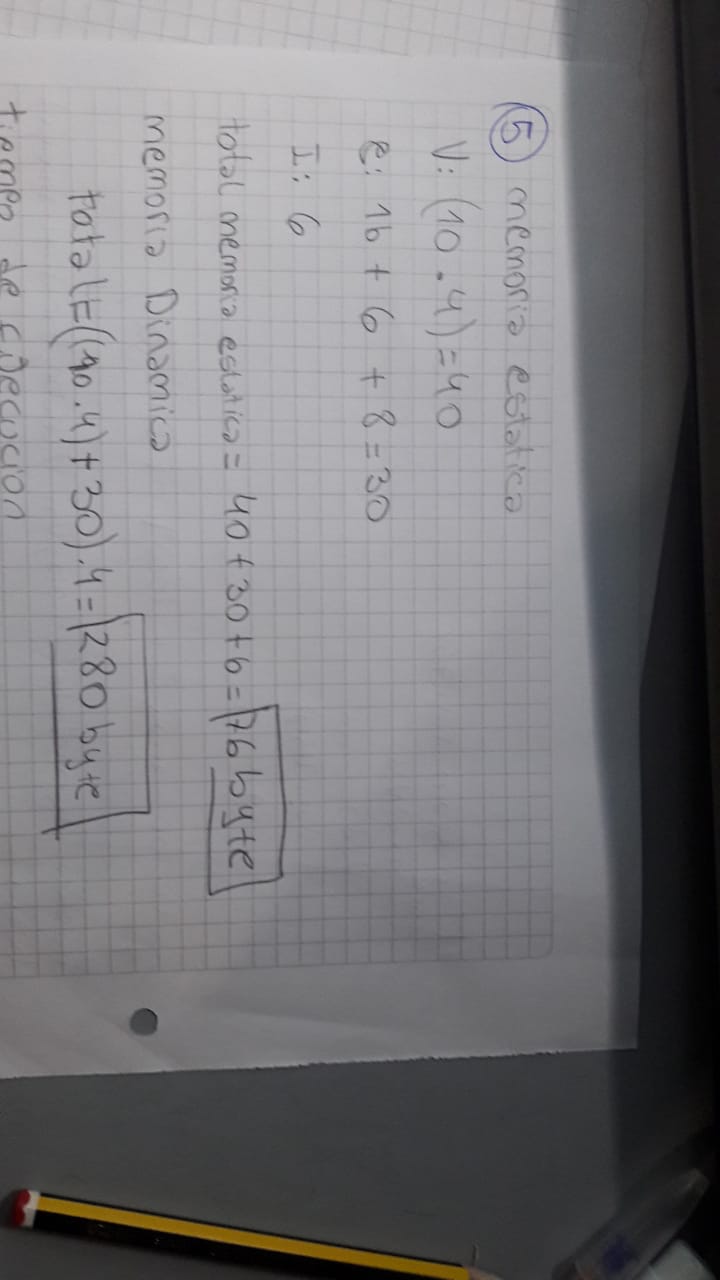 5 memoria estatica
V: (10.4)=40
e: 16 + 6 + 8=30
I: 6
total memoria estatica= 40+30+6= 76 byte
memoria Dinamica
total=((10.4)+30).4= 280 byte
tiempo de ejecucion